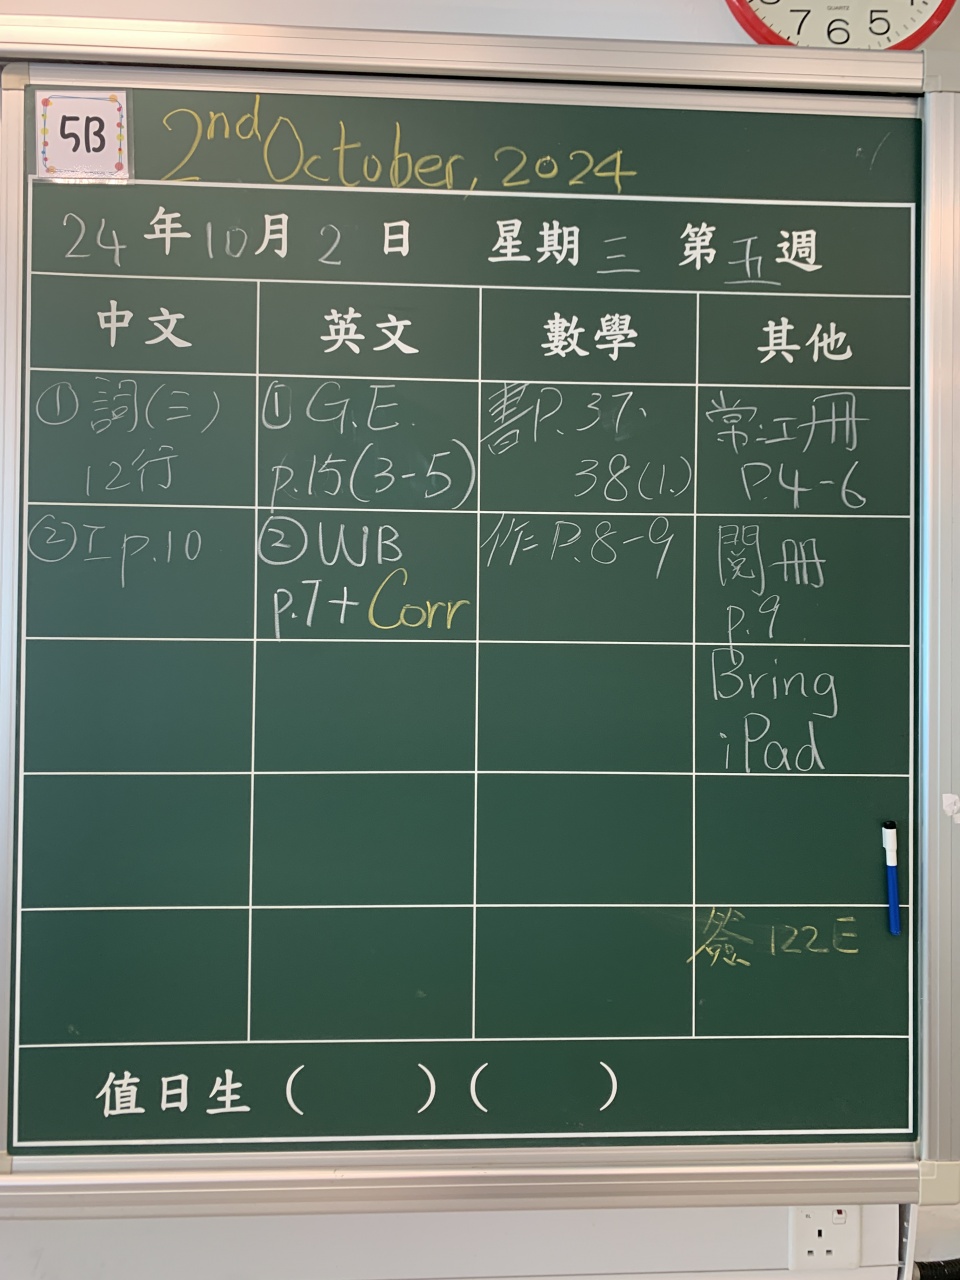 7 6 5
QUARTZ
5B
2nd October, 2024
24 年 10 月 2 日 星期 三 第 五 週
中文 英文 數學 其他
① 詞(三)
12行
① G.E.
p.15(3-5)
書P.37,
38(1.)
常工冊
P.4-6
② I p.10
② WB
p.7 + Corr
作P.8-9
閱冊
p.9
Bring
iPad
簽 122E
值日生 ( ) ( )